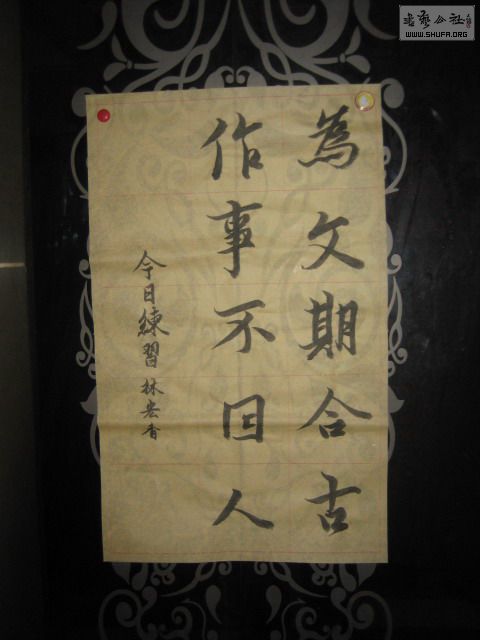 書藝公社
WWW.SHUFA.ORG
為文期合古
作事不囙人
今日練習 林宏香